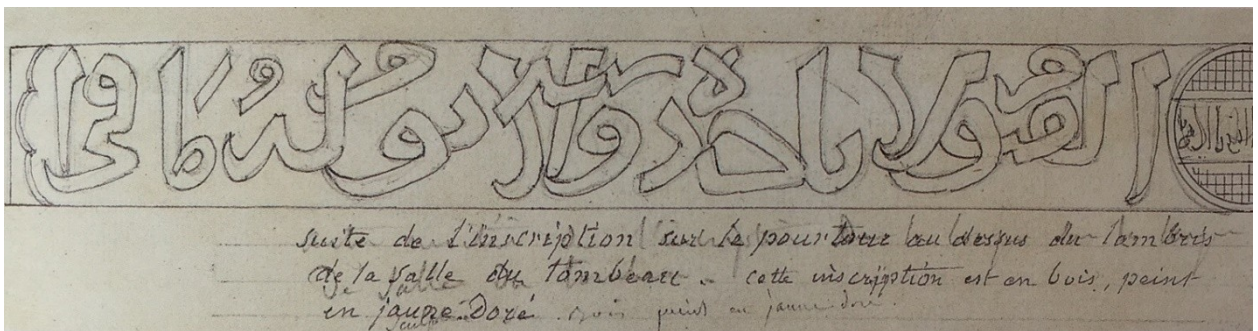 القيوم لا تاخذه سنة ولا نوم له ما فى ا
suite de l'inscription sur le pourtour au dessus du lambris
de la salle du tombeau - cette inscription est en bois, peint
en jaune doré. bois peint en jaune doré.